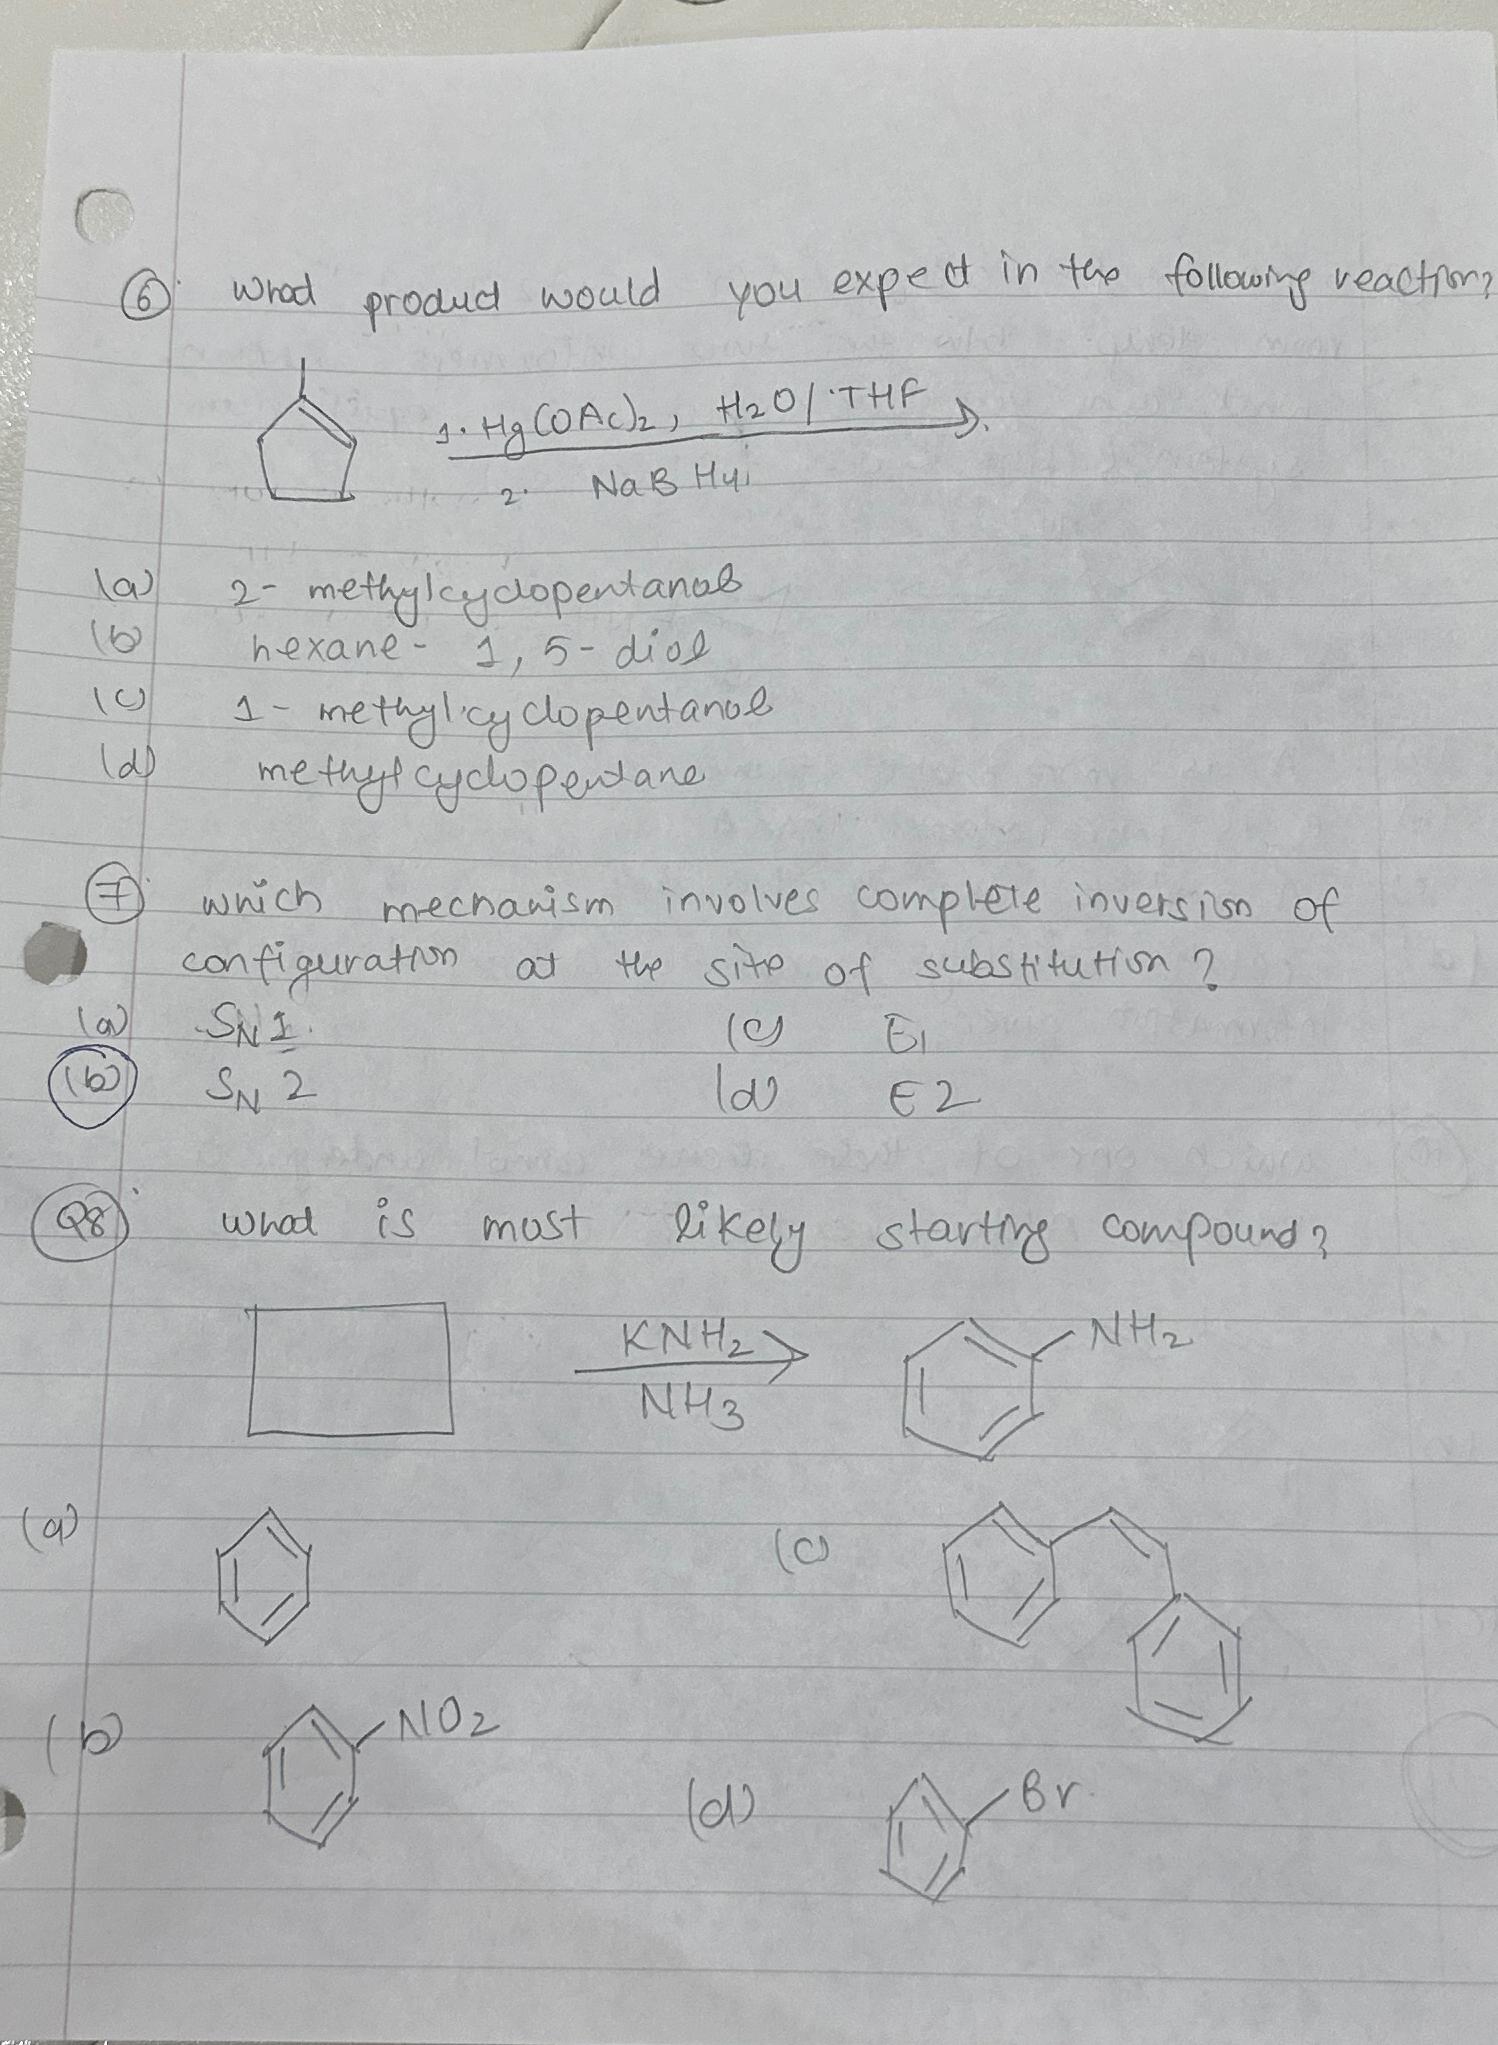 6. What product would you expect in the following reaction?
1. Hg(OAc)2, H2O/THF
2. NaBH4
(a) 2-methylcyclopentanol
(b) hexane-1,5-diol
(c) 1-methylcyclopentanol
(d) methylcyclopentane
7. which mechanism involves complete inversion of
configuration at the site of substitution?
(a) SN1 (c) E1
(b) SN2 (d) E2
Q8. What is most likely starting compound?
KNH2
NH3
NH2
(a) (c)
(b) NO2
(d) Br